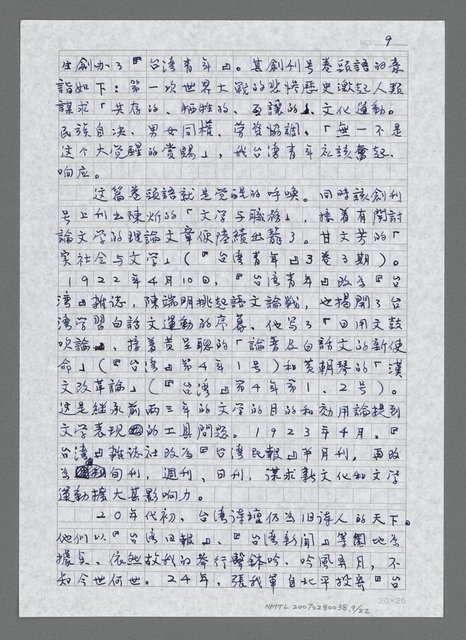 9
生創办了『台湾青年』。其創刊号卷頭語的意
語如下：第一次世界大戰的悲惨歷史激起人類
謀求「共存的、牺牲的、互讓的」、文化運動。
民族自决、男女同權、勞資協調，「無一不是
这个大觉醒的赏赐」，我台湾青年应該奮起、
响应。
这篇卷頭語就是觉醒的呼唤。同時該創刊
号上刊出陳炘的「文学与職務」，接着有関討
論文学的理論文章便陸續出籠了。甘文芳的「
实社会与文学」（『台湾青年』3卷3期）。
1922年4月10日，『台湾青年』改為『台
湾』雜誌，陳端明挑起語文論戰，也揭開了台
湾学習白話文運動的序幕、他写了「日用文鼓
吹論」，接着黄呈聰的「論普及白話文的新使
命」（『台湾』第4年1号）和黄朝琴的「漢
文改革論」（『台湾』第4年第1、2号）。
这是继承前两三年的文学的目的和効用論提到
文学表現的工具問題。1923年4月，『
台湾』雜誌社改為『台湾民報』半月刊，再改
為旬刊，週刊，日刊，謀求新文化和文学
運動擴大其影响力。
20年代初，台湾詩壇仍為旧詩人的天下。
他们以『台湾日報』、『台湾新聞』等園地為
據点、依然故我的举行擊鉢吟、吟風弄月，不
知今世何世。24年，張我軍自北平投寄『台
20×25
NMTL 20070280038, 9/22